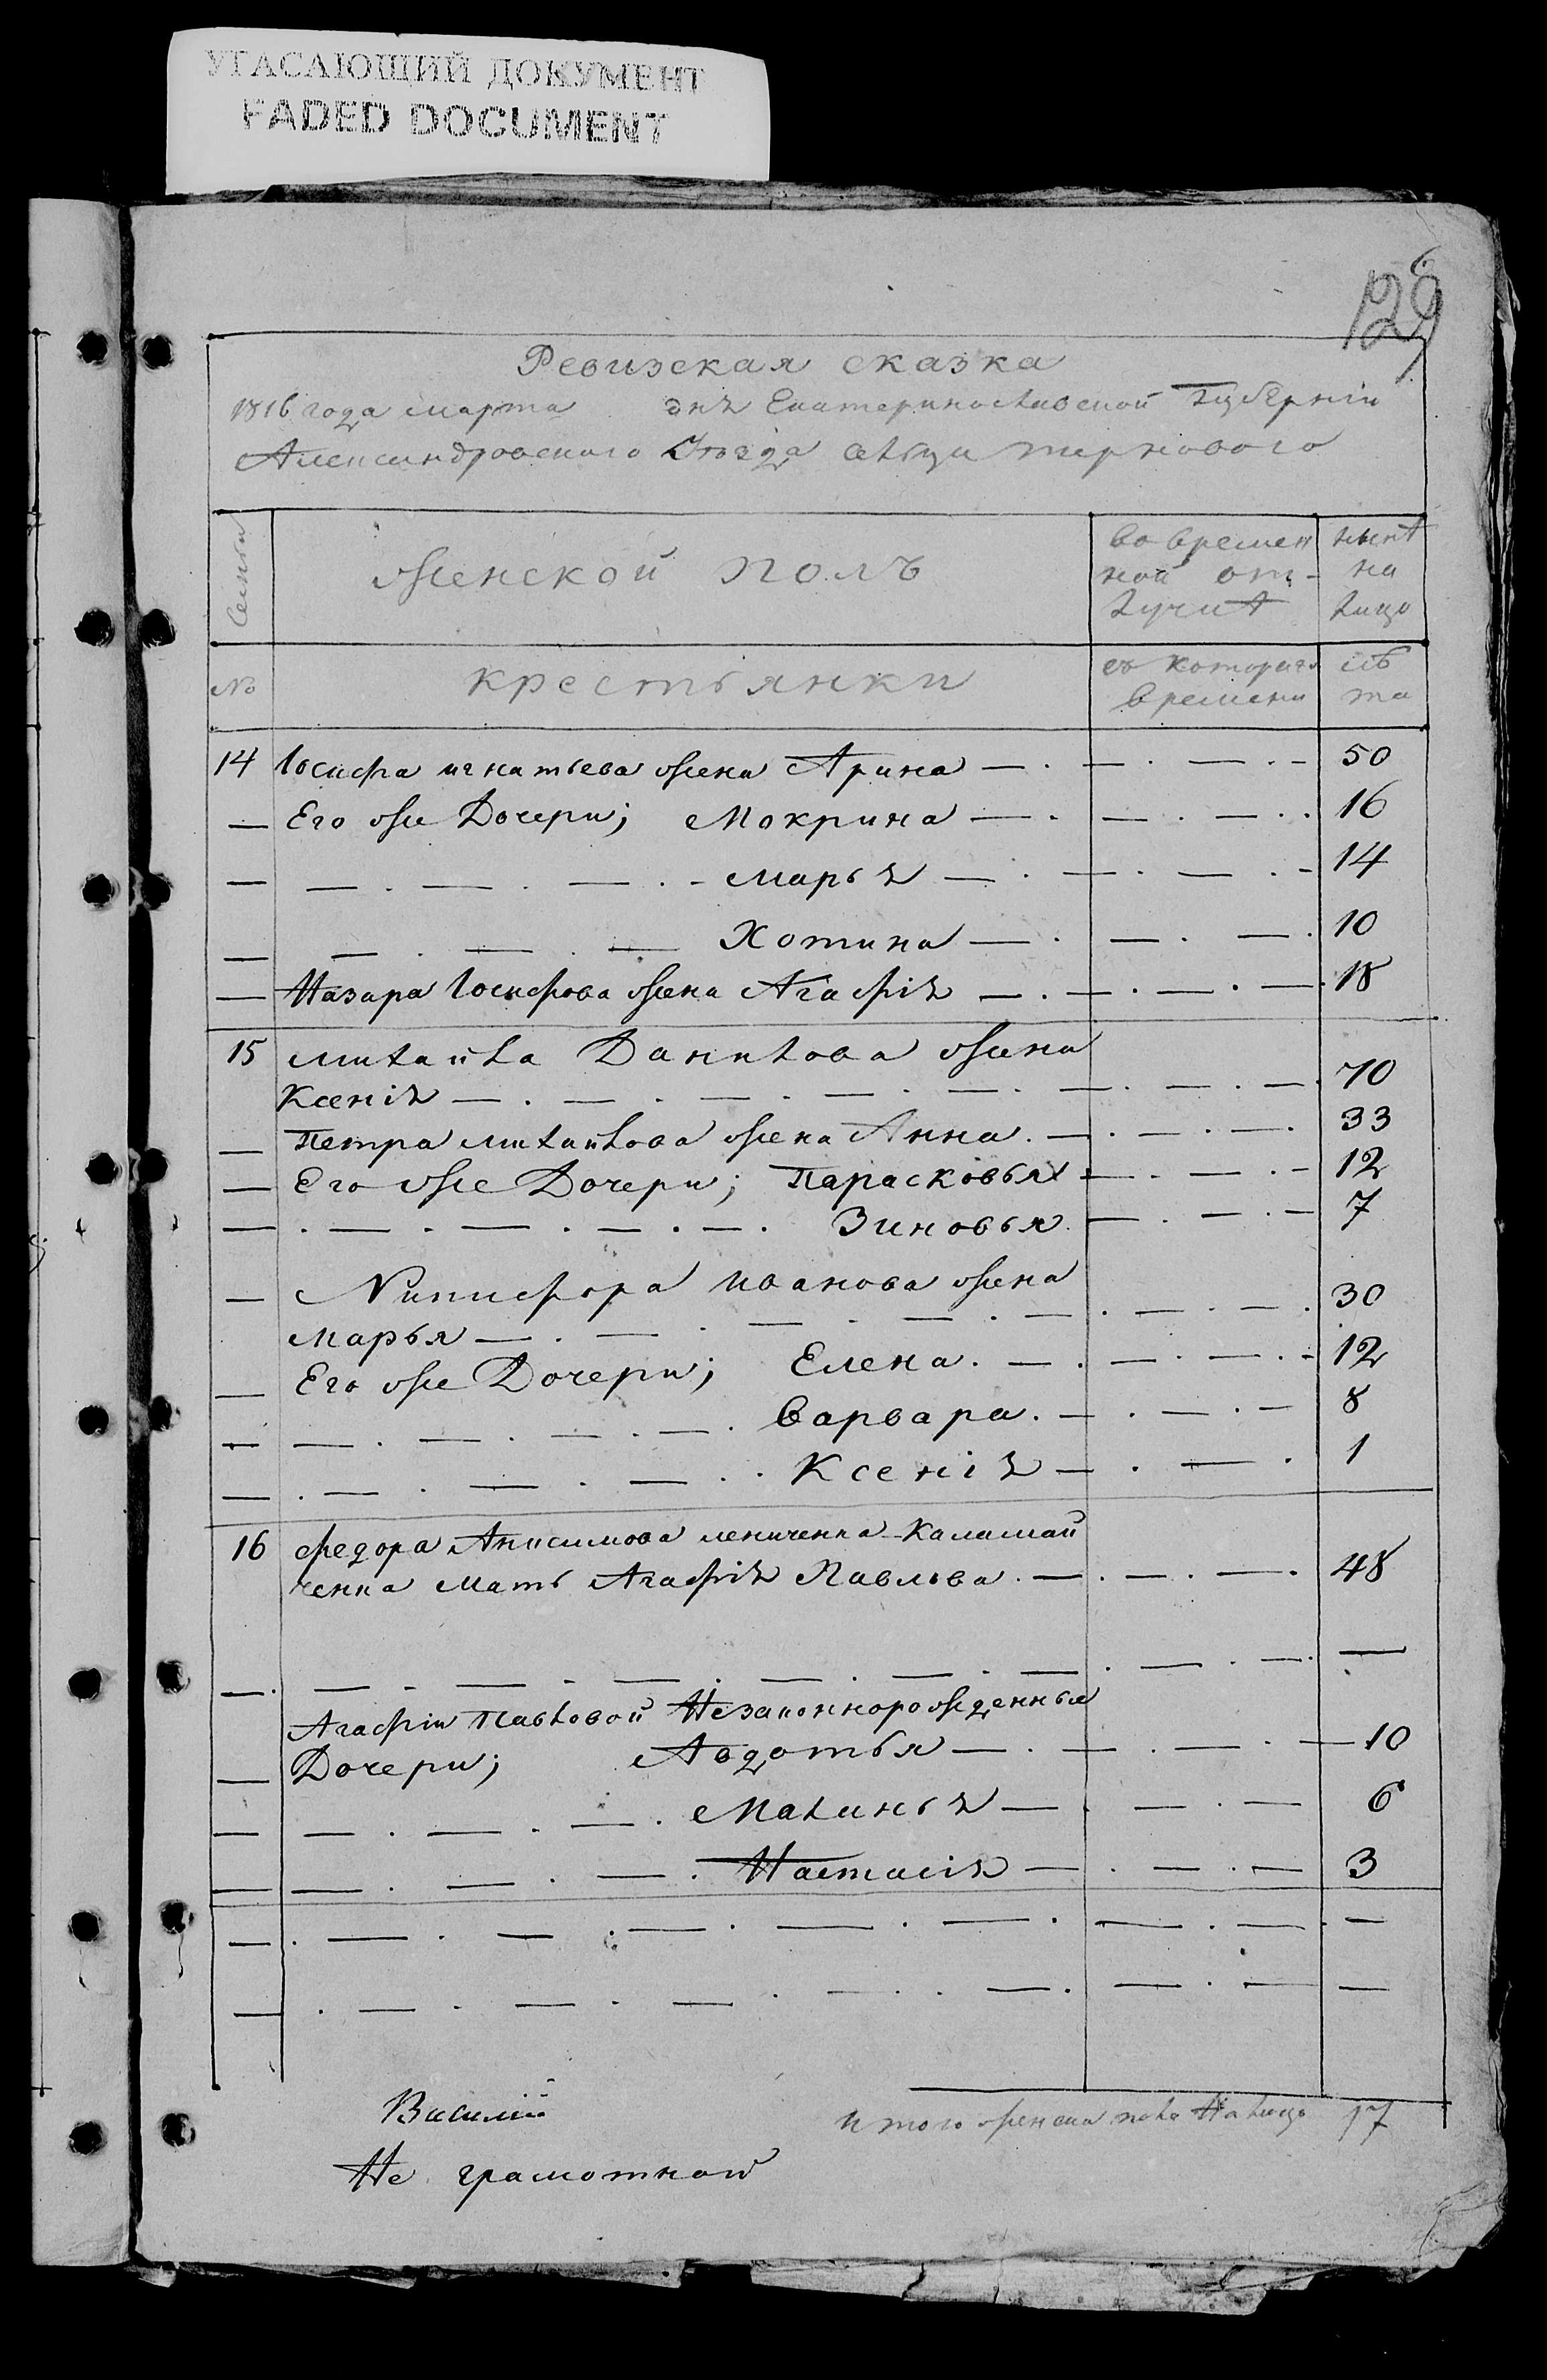 УГАСАЮЩИЙ ДОКУМЕНТ
FADED DOCUMENT
129
Ревизская сказка
1816 года марта дня Екатеринославской Губерніи
Александровского Уезда сельца тернового
Семьи
женской полъ
во времен
ной от-
лучкѣ
нынѣ
на
лицо
№
крестьянки
съ которого
времени
лѣ
та
14 Іосифа игнатьева жена Арина — . — . — . - 50
— Его же Дочери; Мокрина — . — . — . . 16
— — . — . — . - марья — . — . — . - 14
— — . — . — Хотина — . — . — . 10
— Назара Іосифова жена Агафія — . — . — . — . 18
15 михайла Данилова жена
Ксенія — . — . — . — . — . — . — . 70
— Петра михайлова жена Анна . — . — . — . 33
— Его же Дочери; Парасковья — . — . - 12
— . — . — . — . — . Зиновья . — . — . — 7
— Никифора иванова жена
марья — . — . — . — . — . — . — . 30
— Его же Дочери; Елена . — . — . — . - 12
— — . — . — . — . Варвара . — . — . — 8
— . — . — . — . . Ксенія — . — . 1
16 федора Анисимова лениченка Каламай
ченка мать Агафія Павлова . — . — . — . 48
— . — . — . — . — . — . — . — . — . —
Агафіи Павловой Незаконнорожденные
— Дочери; Авдотья — . — . — . — 10
— — . — . — . Маланья — . — . — 6
— — . — . — . Настасія — . — . — 3
— . — . — . — . — . — . — . — . —
— . — . — . — . — . . — . — . — —
Василій
Не грамотной
Итого женска пола На лицо 17